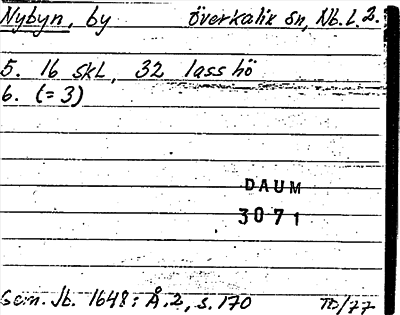 Nybyn, by Överkalix sn, Nb. l. 2.
5. 16 skl, 32 lass hö
6. (= 3)
DAUM
3071
Gem. Jb. 1648: Å.2, s. 170 TD/77